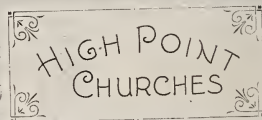 HIGH POINT
CHURCHES